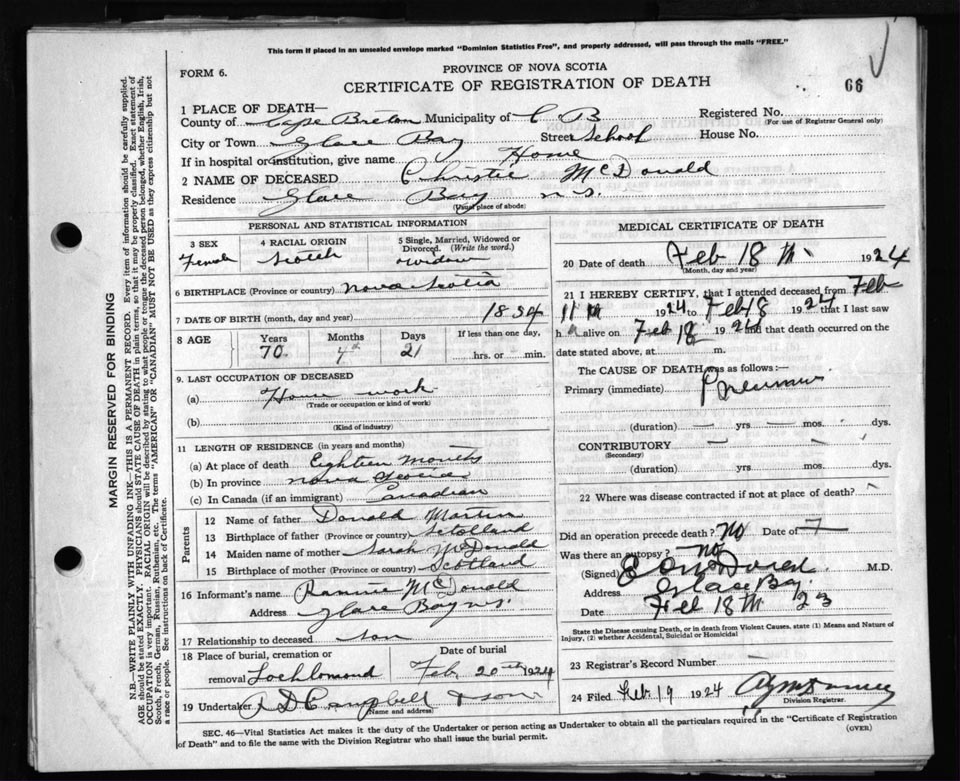 This form if placed in an unsealed envelope marked "Dominion Statistics Free", and properly addressed, will pass through the mails "FREE."
FORM 6.
PROVINCE OF NOVA SCOTIA
CERTIFICATE OF REGISTRATION OF DEATH
66
1 PLACE OF DEATH—
County of Cape Breton Municipality of C B Registered No.
(For use of Registrar General only)
City or Town Glace Bay Street School House No.
If in hospital or institution, give name Home
2 NAME OF DECEASED Christie McDonald
Residence Glace Bay N.S.
(Usual place of abode)
PERSONAL AND STATISTICAL INFORMATION
3 SEX Female
4 RACIAL ORIGIN Scotch
5 Single, Married, Widowed or Divorced. (Write the word.) Widow
6 BIRTHPLACE (Province or country) Nova Scotia
7 DATE OF BIRTH (month, day and year) 1834
8 AGE Years 70 Months 4 Days 21 If less than one day, hrs. or min.
9. LAST OCCUPATION OF DECEASED
(a) House work
(Trade or occupation or kind of work)
(b)
(Kind of industry)
11 LENGTH OF RESIDENCE (in years and months)
(a) At place of death Eighteen Months
(b) In province Nova Scotia
(c) In Canada (if an immigrant) Canadian
Parents
12 Name of father Donald Martin
13 Birthplace of father (Province or country) Scotland
14 Maiden name of mother Sarah McDonald
15 Birthplace of mother (Province or country) Scotland
16 Informant's name Rannie McDonald
Address Glace Bay N.S.
17 Relationship to deceased Son
18 Place of burial, cremation or removal Loch Lomond
Date of burial Feb 20th 1924
19 Undertaker A D Campbell & son
(Name and address)
MEDICAL CERTIFICATE OF DEATH
20 Date of death Feb 18th 1924
(Month, day and year)
21 I HEREBY CERTIFY, that I attended deceased from Feb
11th 1924 to Feb 18 1924 that I last saw
h alive on Feb 18 1924 and that death occurred on the
date stated above, at m.
The CAUSE OF DEATH was as follows:—
Primary (immediate)
(duration) — yrs — mos. dys.
CONTRIBUTORY —
(Secondary)
(duration) yrs mos. dys.
22 Where was disease contracted if not at place of death? —
Did an operation precede death? No Date of —
Was there an autopsy? No
(Signed) M.D.
Address Glace Bay.
Date Feb 18th 23
State the Disease causing Death, or in death from Violent Causes, state (1) Means and Nature of Injury, (2) whether Accidental, Suicidal or Homicidal
23 Registrar's Record Number —
24 Filed Feb 19 1924
Division Registrar.
SEC. 46—Vital Statistics Act makes it the duty of the Undertaker or person acting as Undertaker to obtain all the particulars required in the "Certificate of Registration
of Death" and to file the same with the Division Registrar who shall issue the burial permit.
(OVER)
MARGIN RESERVED FOR BINDING
N.B.—WRITE PLAINLY WITH UNFADING INK—THIS IS A PERMANENT RECORD. Every item of information should be carefully supplied.
AGE should be stated EXACTLY. PHYSICIANS should STATE CAUSE OF DEATH in plain terms, so that it may be properly classified. Exact statement of
OCCUPATION is very important. RACIAL ORIGIN will be described by stating to what people or tongue the deceased person belonged, whether English, Irish,
Scotch, French, German, Russian, Ruthenian, etc. The terms "AMERICAN" OR "CANADIAN" MUST NOT BE USED as they express citizenship but not
a race or people. See instructions on back of Certificate.